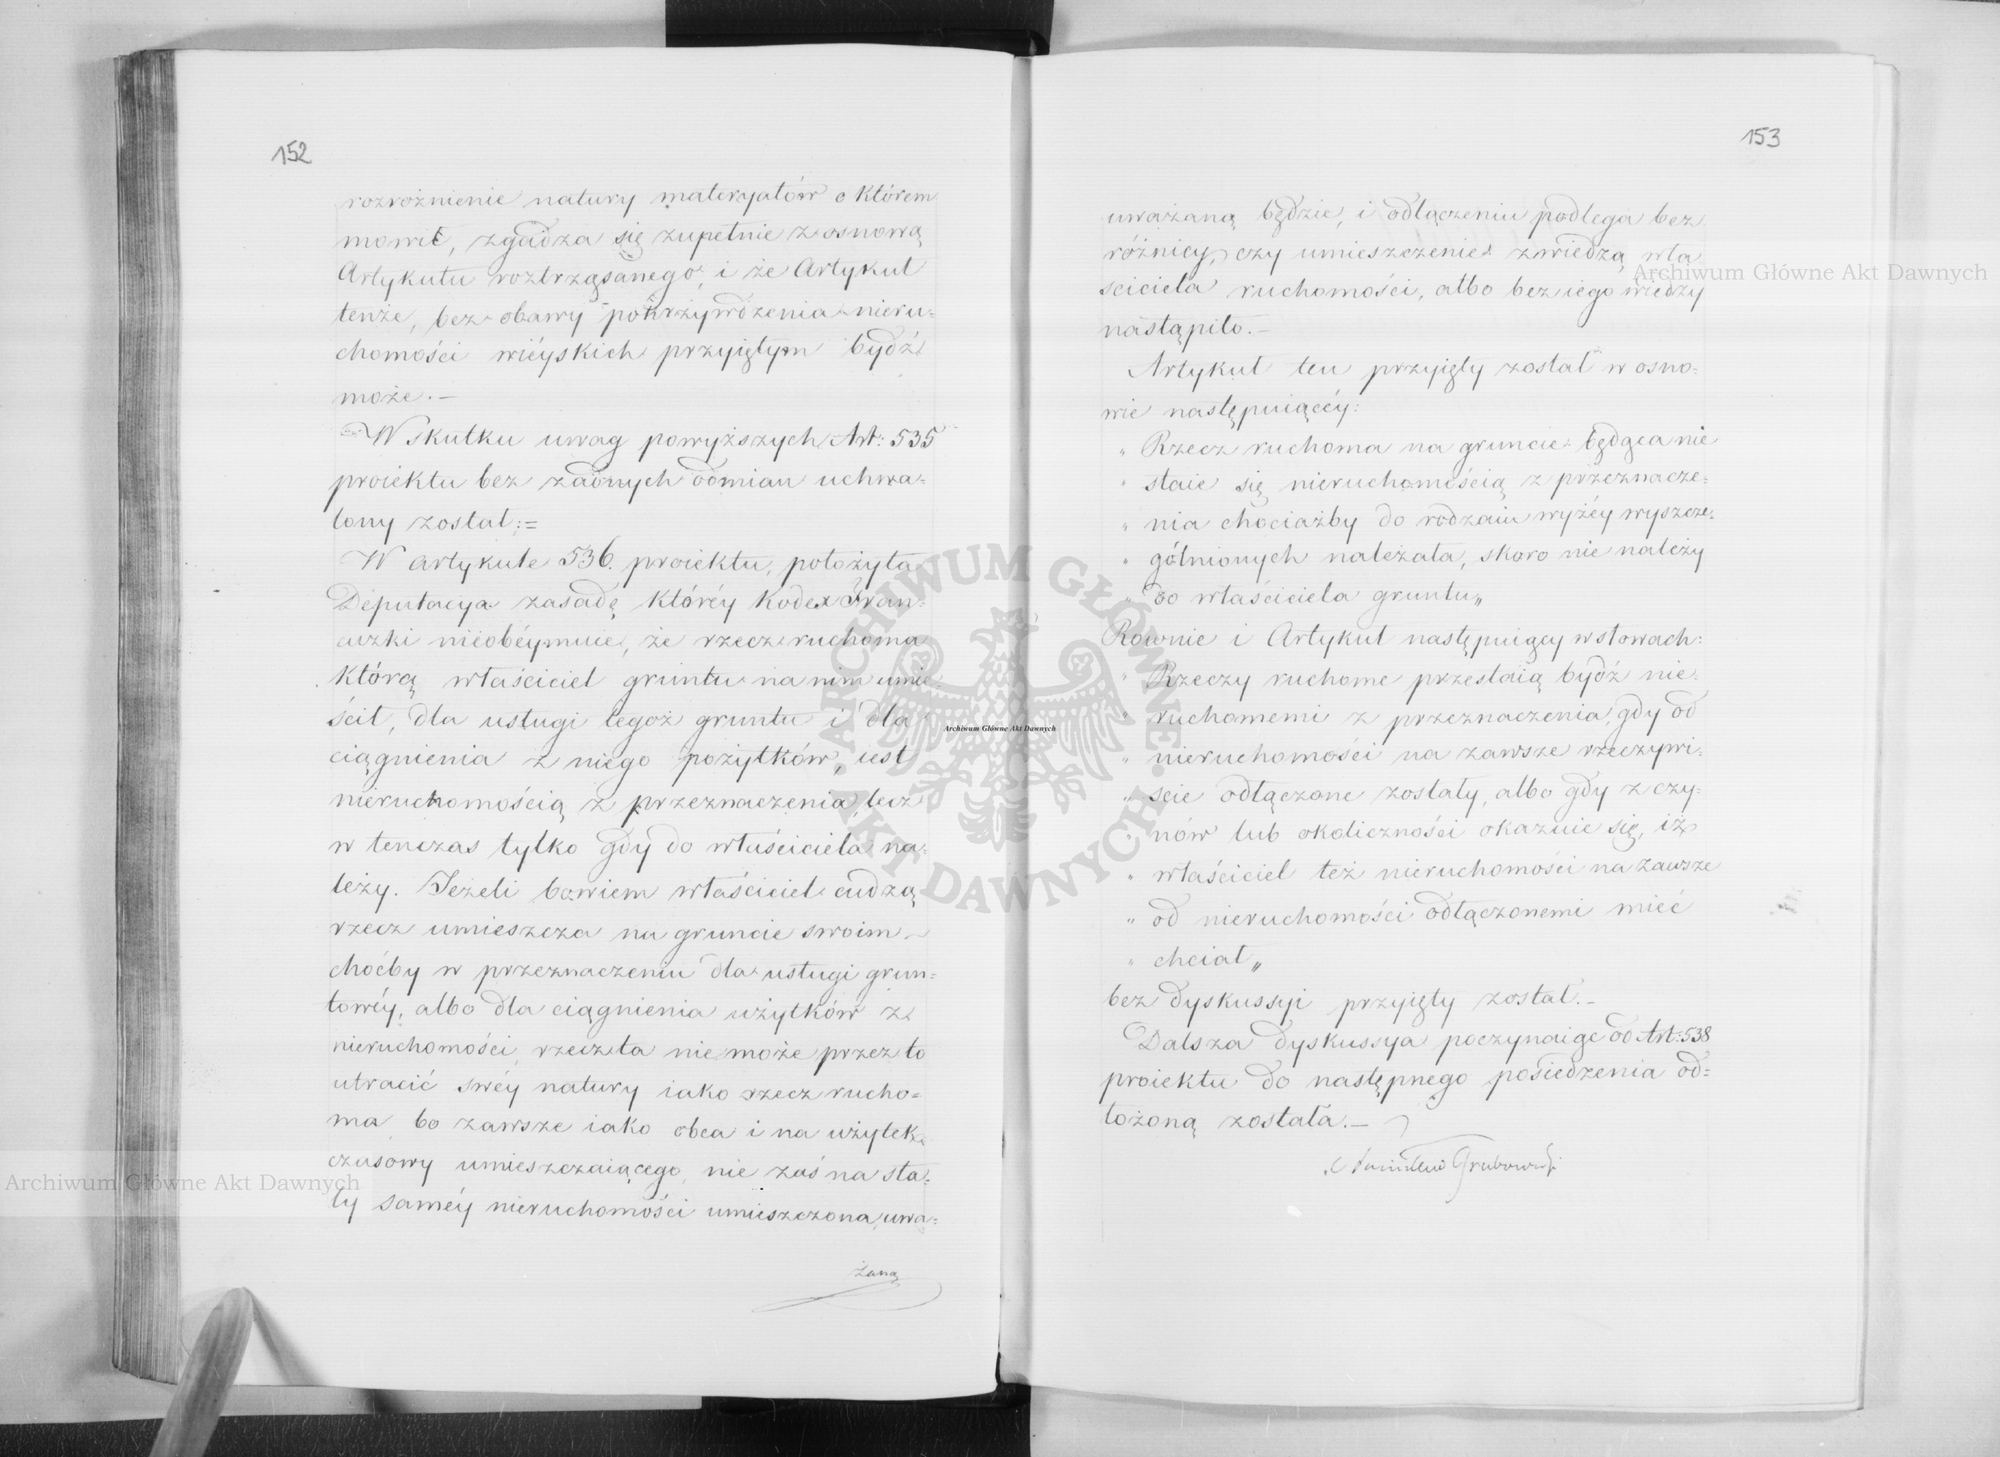 152
rozrożnienie natury materyałów o którem
mowił, zgadza się zupełnie z osnową
Artykułu roztrząsanego, i że Artykuł
tenże, bez obawy pokrzywdzenia nieru=
chomości wiéyskich przyiętym bydź
może. —
W skutku uwag powyższych Art: 535
proiektu bez żadnych odmian uchwa=
lony został: =
W artykule 536. proiektu, położyła
Deputacya zasadę któréy Kodex Fran=
cuzki nieobéymuie, że rzecz ruchoma
którą właściciel gruntu na nim umie
ścił, dla usługi tegoż gruntu i dla
ciągnienia z niego pożytków, iest
nieruchomością z przeznaczenia, lecz
w tenczas tylko gdy do właściciela na=
leży. Jeżeli bowiem właściciel cudzą
rzecz umieszcza na gruncie swoim
choćby w przeznaczeniu dla usługi grun=
towéy, albo dla ciągnienia użytków z
nieruchomości, rzecz ta nie może przez to
utracić swéy natury iako rzecz rucho=
ma bo zawsze iako obca i na użytek
czasowy umieszczaiącego, nie zaś na sta=
ły saméy nieruchomości umieszczona, uwa=
żaną
153
uważaną będzie, i odłączeniu podlega bez
różnicy, czy umieszczenie z wiedzą wła
sciciela ruchomości, albo bez iego wiedzy
nastąpiło. —
Artykuł ten przyięty został w osno=
wie następuiącéy:
„ Rzecz ruchoma na gruncie będąca nie
„ staie się nieruchomością z przeznacze=
„ nia chociażby do rodzaiu wyżéy wyszcze=
„ gólnionych należała, skoro nie należy
„ do właściciela gruntu„
Rownie i Artykuł następuiący w słowach:
„ Rzeczy ruchome przestaią bydź nie=
„ ruchomemi z przeznaczenia, gdy od
„ nieruchomości na zawsze rzeczywi=
„ scie odłączone zostały, albo gdy z czy=
„ nów lub okoliczności okazuie się, iż
„ właściciel też nieruchomości na zawsze
„ od nieruchomości odłączonemi mieć
„ chciał„
bez dyskussyi przyięty został. —
Dalsza dyskussya poczynaiąc od Art: 538
proiektu do następnego posiedzenia od=
łożoną została. —
Stanisław Grabowski
Archiwum Główne Akt Dawnych
Archiwum Główne Akt Dawnych
Archiwum Główne Akt Dawnych
ARCHIWUM GŁÓWNE · AKT DAWNYCH ·